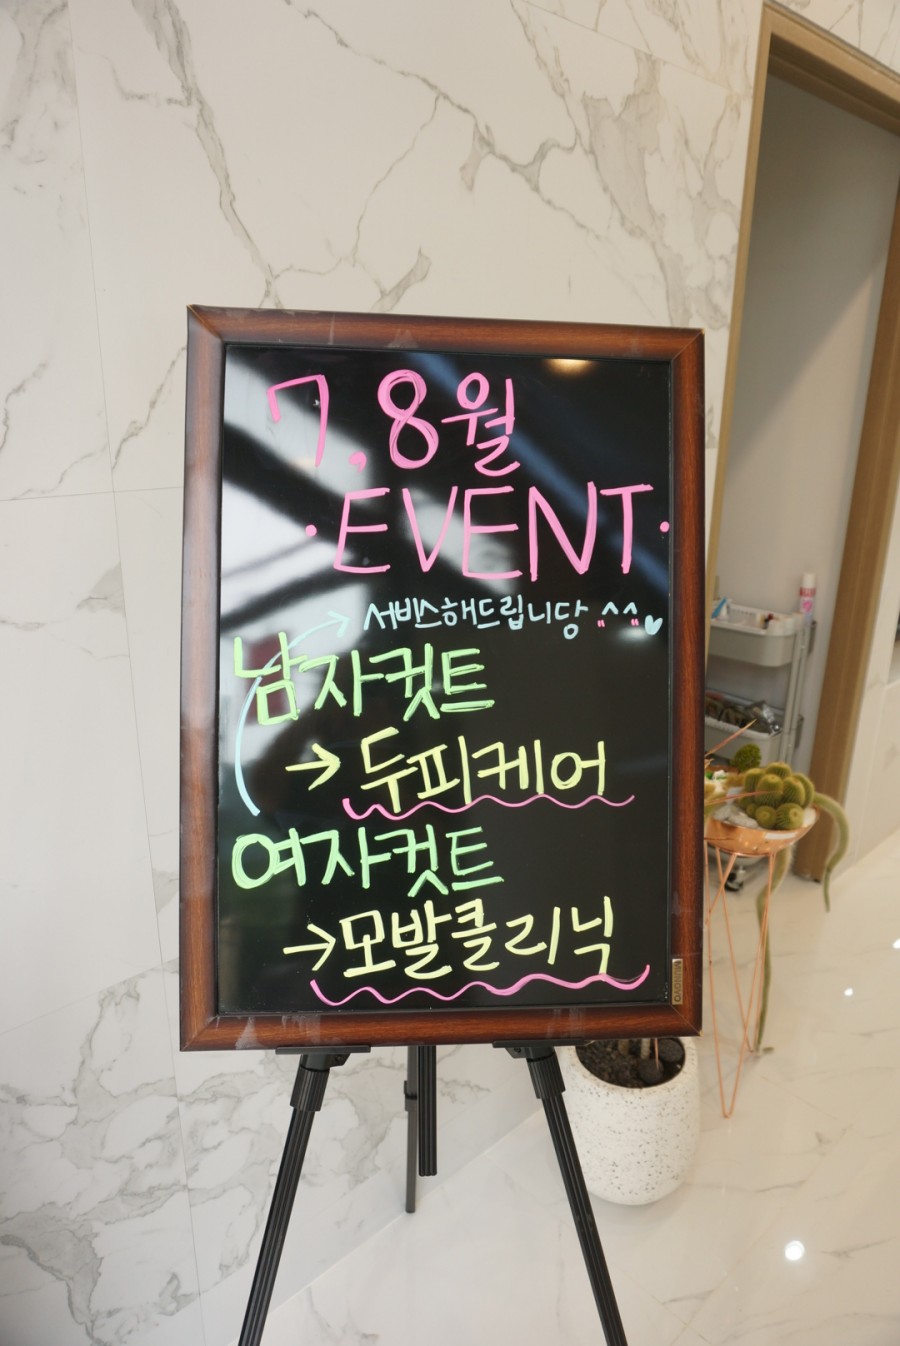 7,8월
·EVENT·
→ 서비스해드립니당 ^^♥
남자컷트
→ 두피케어
여자컷트
→ 모발클리닉